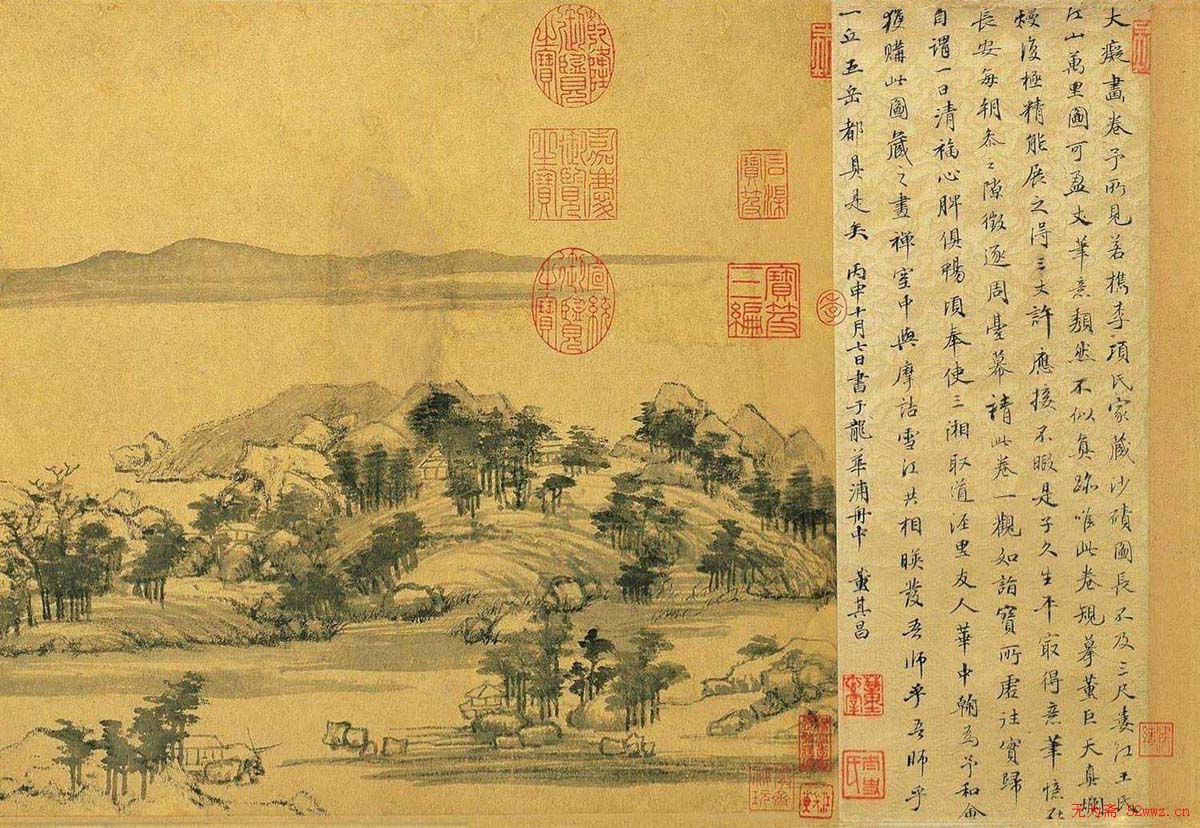 大癡畫卷予所見若檇李項氏家藏沙磧圖長不及三尺婁江王氏
江山萬里圖可盈丈筆意頹然不似真跡唯此卷規摹董巨天真爛
熳復極精能展之得三丈許應接不暇是子久生平冣得意筆憶在
長安每朝參之隙徵逐周臺幕請此卷一觀如詣寶所虛往實歸
自謂一日清福心脾俱暢頃奉使三湘取道涇里友人華中翰為予和會
獲購此圖藏之畫禪室中與摩詰雪江共相暎發吾師乎吾師乎
一丘五岳都具是矣 丙申十月七日書于龍華浦舟中 董其昌
石渠寶笈
寶笈三編
乾隆御覽之寶
嘉慶御覽之寶
宣統御覽之寶
无为斋